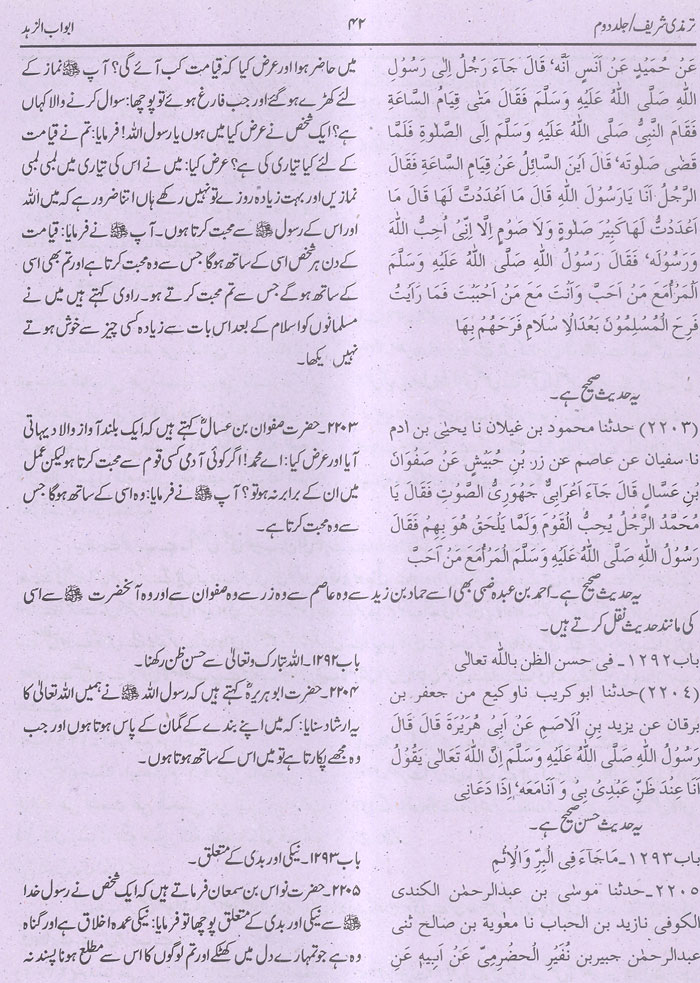 ترمذی شریف/جلد دوم ۴۲ ابواب الزہد
عَنْ حُمَيْدٍ عَنْ اَنَسٍ اَنَّهٗ قَالَ جَآءَ رَجُلٌ اِلٰى رَسُوْلِ
اللّٰهِ صَلَّى اللّٰهُ عَلَيْهِ وَسَلَّمَ فَقَالَ مَتٰى قِيَامُ السَّاعَةِ
فَقَامَ النَّبِىُّ صَلَّى اللّٰهُ عَلَيْهِ وَسَلَّمَ اِلَى الصَّلٰوةِ فَلَمَّا
قَضٰى صَلٰوتَهٗ قَالَ اَيْنَ السَّائِلُ عَنْ قِيَامِ السَّاعَةِ فَقَالَ
الرَّجُلُ اَنَا يَارَسُوْلَ اللّٰهِ قَالَ مَا اَعْدَدْتَّ لَهَا قَالَ مَا
اَعْدَدْتُّ لَهَا كَبِيْرَ صَلٰوةٍ وَلَا صَوْمٍ اِلَّا اِنِّىْ اُحِبُّ اللّٰهَ
وَرَسُوْلَهٗ فَقَالَ رَسُوْلُ اللّٰهِ صَلَّى اللّٰهُ عَلَيْهِ وَسَلَّمَ
اَلْمَرْأُمَعَ مَنْ اَحَبَّ وَاَنْتَ مَعَ مَنْ اَحْبَبْتَ فَمَا رَاَيْتُ
فَرِحَ الْمُسْلِمُوْنَ بَعْدَالْاِ سْلَامِ فَرَحَهُمْ بِهَا
میں حاضر ہوا اور عرض کیا کہ قیامت کب آئے گی؟ آپ ﷺ نماز کے
لئے کھڑے ہو گئے اور جب فارغ ہوئے تو پوچھا: سوال کرنے والا کہاں
ہے؟ ایک شخص نے عرض کیا میں ہوں یا رسول اللہ! فرمایا: تم نے قیامت
کے لئے کیا تیاری کی ہے؟ عرض کیا: میں نے اس کی تیاری میں لمبی لمبی
نمازیں اور بہت زیادہ روزے تو نہیں رکھے ہاں اتنا ضرور ہے کہ میں اللہ
اور اس کے رسول ﷺ سے محبت کرتا ہوں۔ آپ ﷺ نے فرمایا: قیامت
کے دن ہر شخص اسی کے ساتھ ہوگا جس سے وہ محبت کرتا ہے اور تم بھی اسی
کے ساتھ ہو گے جس سے تم محبت کرتے ہو۔ راوی کہتے ہیں میں نے
مسلمانوں کو اسلام کے بعد اس بات سے زیادہ کسی چیز سے خوش ہوتے
نہیں یکھا۔
یہ حدیث صحیح ہے۔
(۲۲۰۳) حدثنا محمود بن غيلان نا يحيٰى بن ادم
نا سفيان عن عاصم عن زر بْنِ حُبَيْشٍ عَنْ صَفْوَانَ
بْنِ عَسَّالٍ قَالَ جَآءَ اَعْرَابِىٌّ جَهْوَرِىُّ الصَّوْتِ فَقَالَ يَا
مُحَمَّدُ الرَّجُلُ يُحِبُّ الْقَوْمَ وَلَمَّا يَلْحَقْ هُوَ بِهِمْ فَقَالَ
رَسُوْلُ اللّٰهِ صَلَّى اللّٰهُ عَلَيْهِ وَسَلَّمَ اَلْمَرْأُمَعَ مَنْ اَحَبَّ
۲۲۰۳۔ حضرت صفوان بن عسالؓ کہتے ہیں کہ ایک بلند آواز والا دیہاتی
آیا اور عرض کیا: اے محمد! اگر کوئی آدمی کسی قوم سے محبت کرتا ہو لیکن عمل
میں ان کے برابر نہ ہو تو؟ آپ ﷺ نے فرمایا: وہ اسی کے ساتھ ہوگا جس
سے وہ محبت کرتا ہے۔
یہ حدیث صحیح ہے۔ احمد بن عبدہ ضبی بھی اسے حماد بن زید سے وہ عاصم سے وہ زر سے وہ صفوان سے اور وہ آنحضرت ﷺ سے اسی
کی مانند حدیث نقل کرتے ہیں۔
باب۱۲۹۲۔ فى حسن الظن باللّٰه تعالى
(۲۲۰٤) حدثنا ابو كريب ناو كيع من جعفر بن
برقان عن يزيد بْنِ الْاَصَمِّ عَنْ اَبِىْ هُرَيْرَةَ قَالَ قَالَ
رَسُوْلُ اللّٰهِ صَلَّى اللّٰهُ عَلَيْهِ وَسَلَّمَ اِنَّ اللّٰهَ تَعَالٰى يَقُوْلُ
اَنَا عِنْدَ ظَنِّ عَبْدِىْ بِىْ وَ اَنَامَعَهٗ اِذَا دَعَانِى
باب۱۲۹۲۔ اللہ تبارک وتعالیٰ سے حسن ظن رکھنا۔
۲۲۰۴۔ حضرت ابو ہریرہؓ کہتے ہیں کہ رسول اللہ ﷺ نے ہمیں اللہ تعالیٰ کا
یہ ارشاد سنایا: کہ میں اپنے بندے کے گمان کے پاس ہوتا ہوں اور جب
وہ مجھے پکارتا ہے تو میں اس کے ساتھ ہوتا ہوں۔
یہ حدیث حسن صحیح ہے۔
باب۱۲۹۳۔ مَاجَآءَ فِى الْبِرِّ وَالْاِثْمِ
۲۲۰۵۔ حدثنا موسٰى بن عبدالرحمٰن الكندى
الكوفى نازيد بن الحباب نا معٰوية بن صالح ثنى
عبدالرحمٰن جبيربن نُفَيْرِ الْحَضْرَمِىِّ عَنْ اَبِيْهِ عَنِ
باب۱۲۹۳۔ نیکی اور بدی کے متعلق۔
۲۲۰۵۔ حضرت نواس بن سمعان فرماتے ہیں کہ ایک شخص نے رسول خدا
ﷺ سے نیکی اور بدی کے متعلق پوچھا تو فرمایا: نیکی عمدہ اخلاق ہے اور گناہ
وہ ہے جو تمہارے دل میں کھٹکے اور تم لوگوں کا اس سے مطلع ہونا پسند نہ